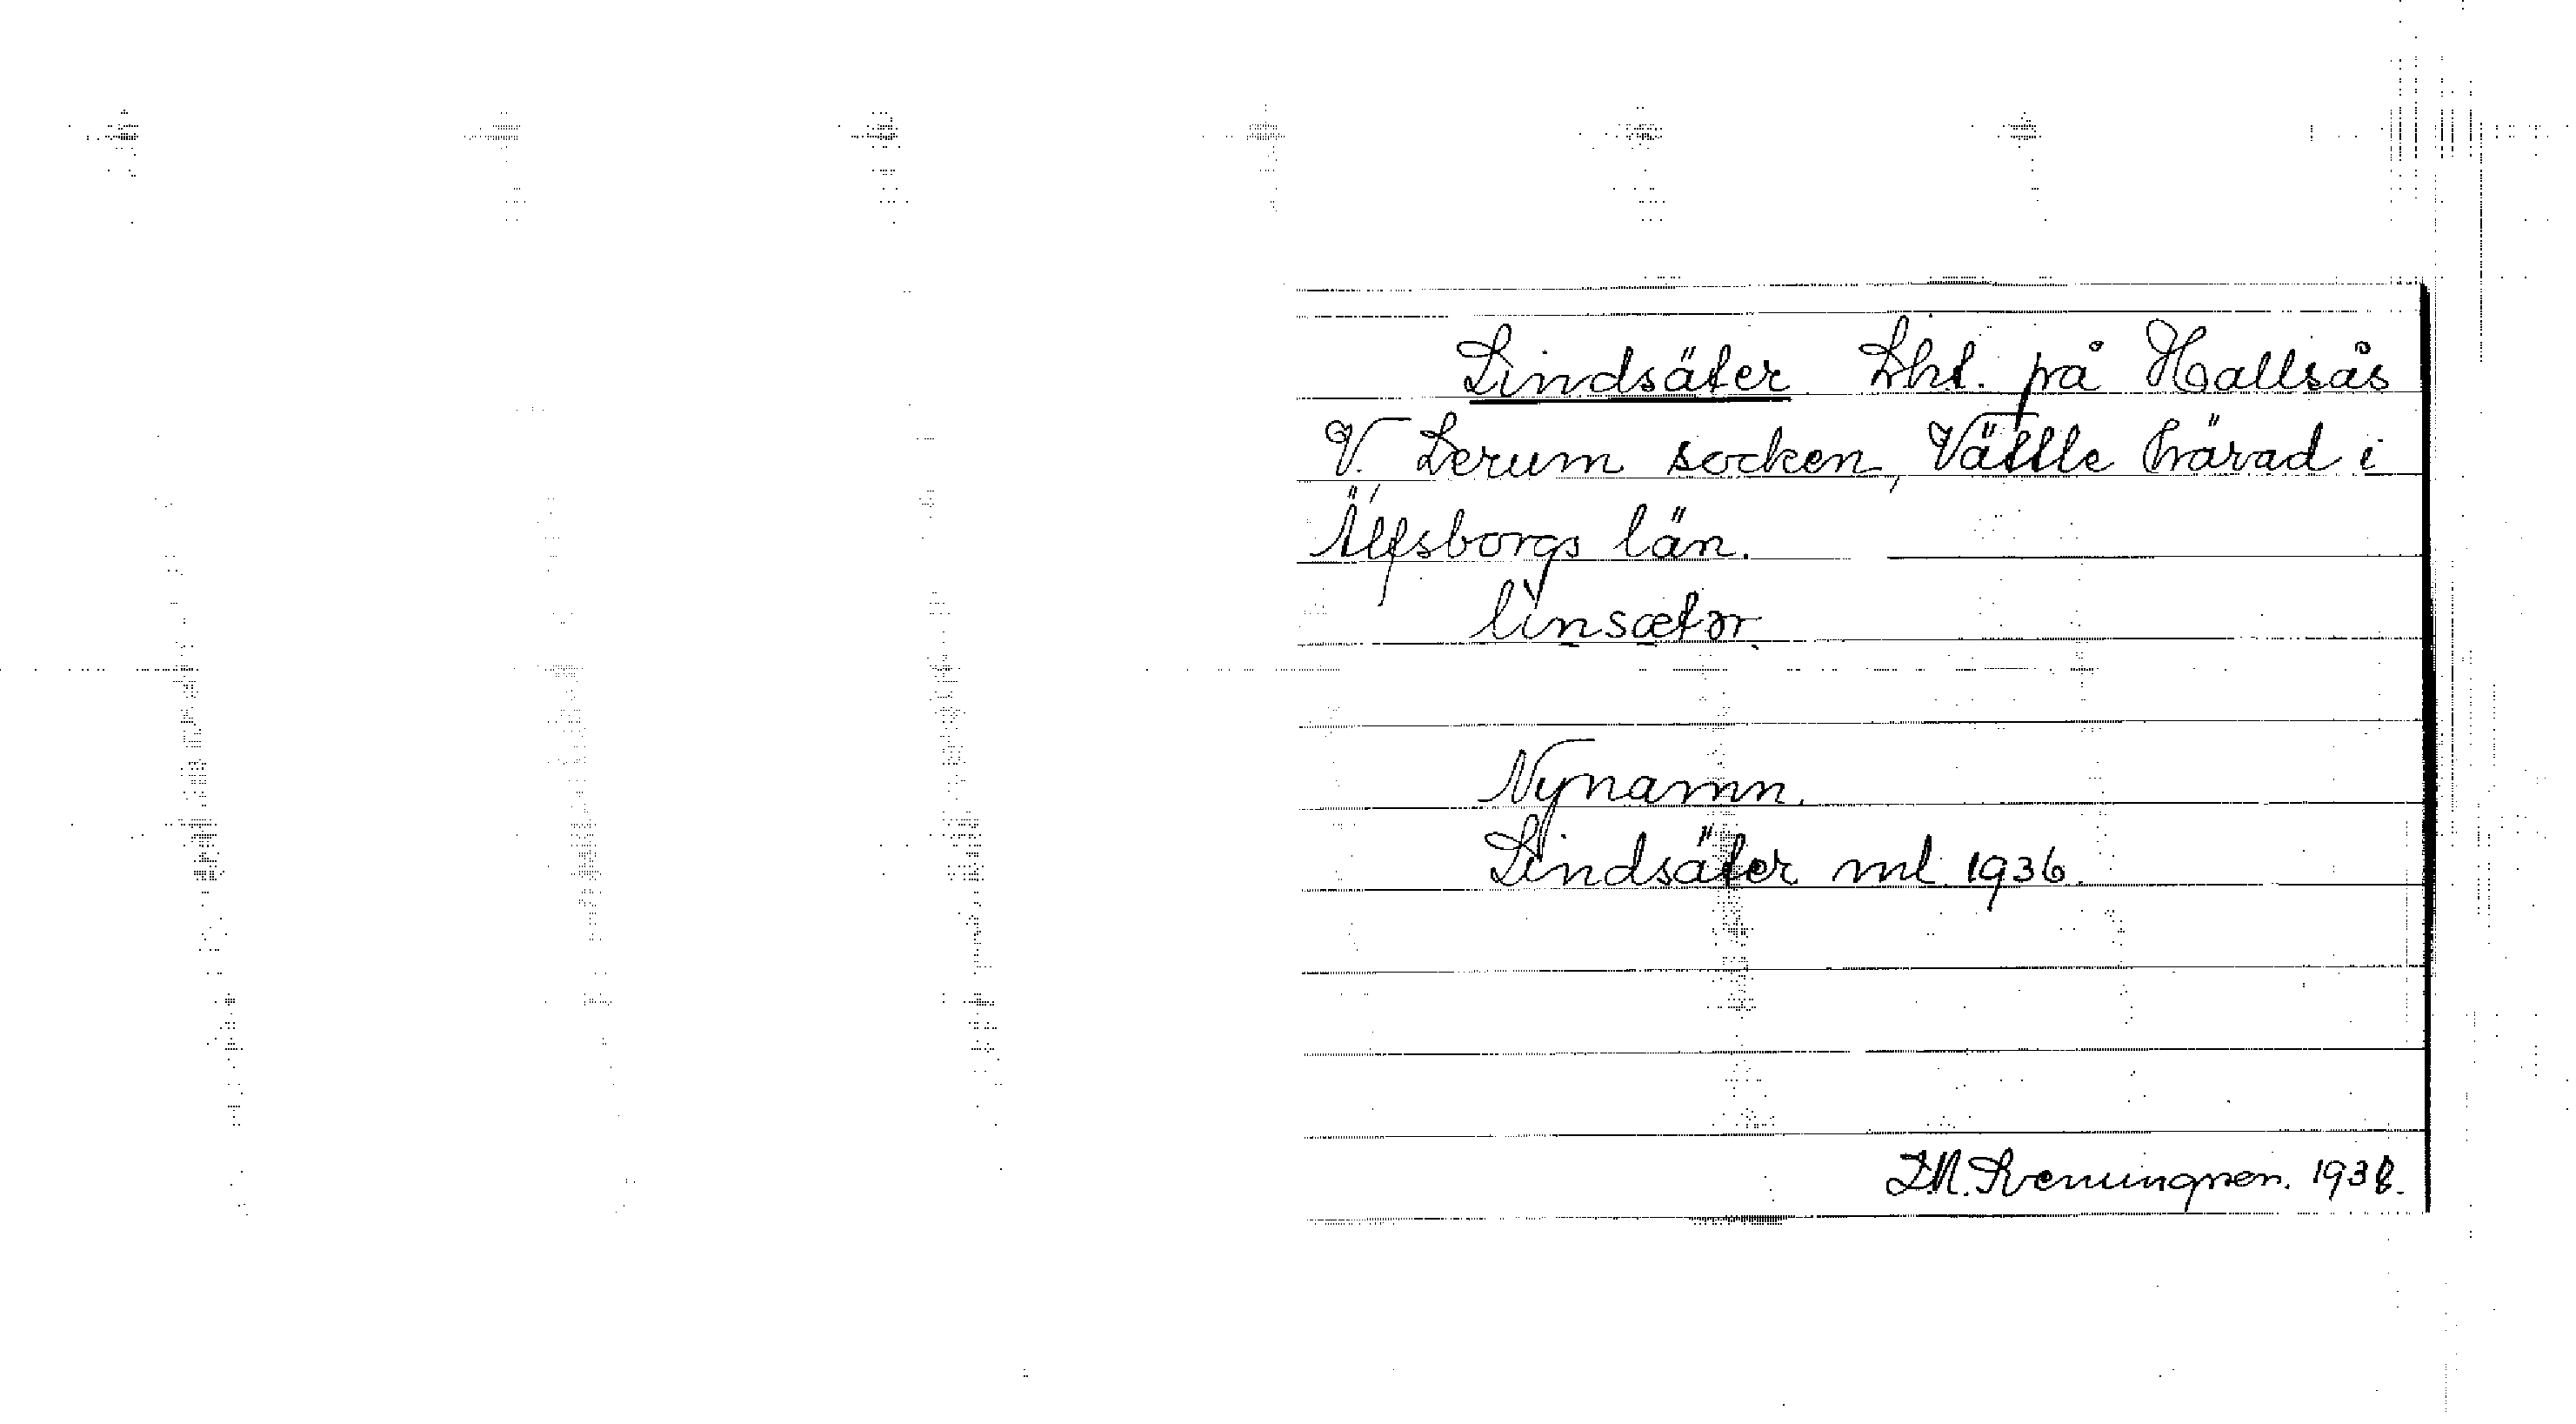 Lindsäter Lht. på Hallsås
V. Lerum socken, Vättle härad i
Älfsborgs län.
lìnsætər
Nynamn.
Lindsäter ml 1936.
193